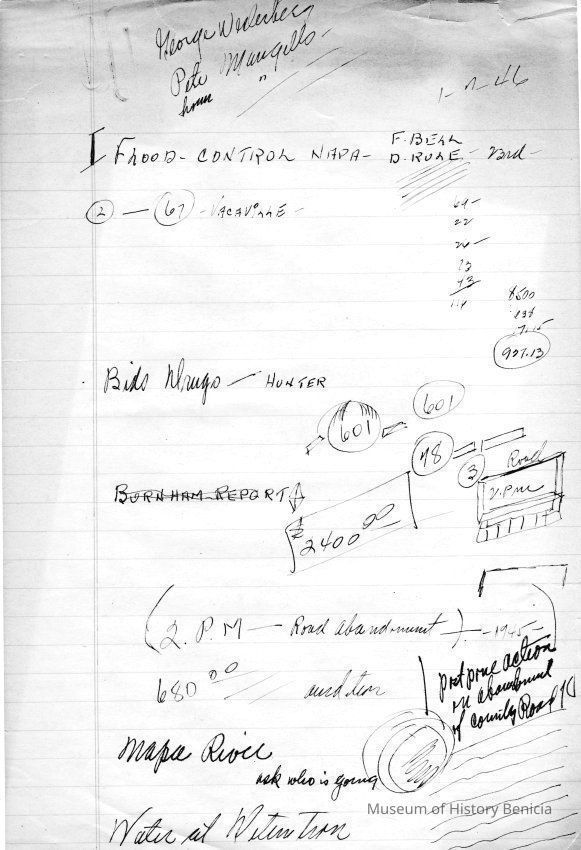 George
Pete Mangells
home "
1-7-46
I FLOOD-CONTROL NAPA- F. BELL
D. RULE - 23rd-
2 — 67 - VACAVILLE -
64-
22
8500
927.13
Bids Drugs — HUNTER
601
601
48
3
Road
2.P.M
BURNHAM REPORT
$2400 00
(2. P.M — Road abandonment) — -1945-
680 00 audition
postpone action
on abandonment
of county Road
Napa River
ask who is going
Water at
Museum of History Benicia